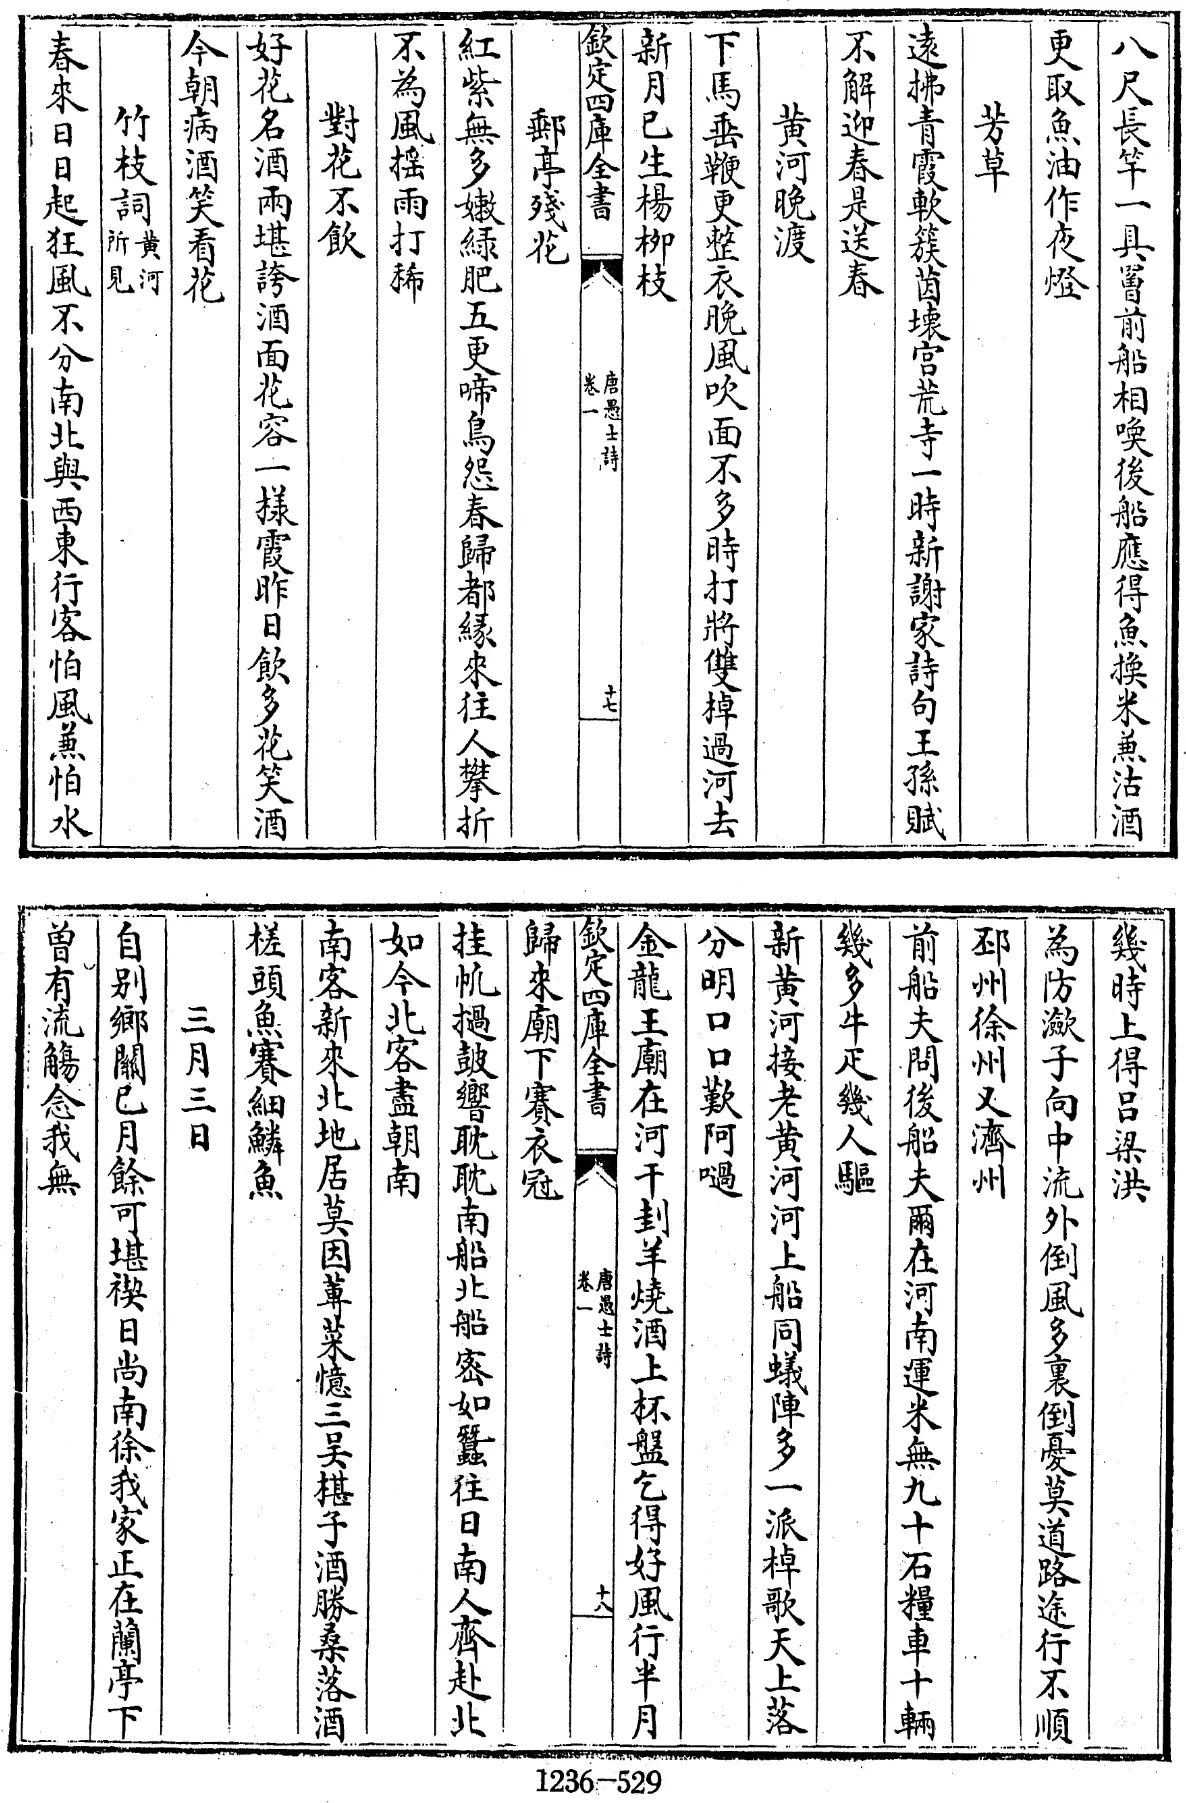 八尺長竿一具罾前船相喚後船應得魚換米兼沽酒
更取魚油作夜燈
芳草
遠拂青霞軟簇茵壞宫荒寺一時新謝家詩句王孫賦
不解迎春是送春
黄河晚渡
下馬垂鞭更整衣晚風吹面不多時打將雙棹過河去
新月已生楊柳枝
欽定四庫全書
唐愚士詩
卷一
十七
郵亭殘花
紅紫無多嫩緑肥五更啼鳥怨春歸都緣來往人攀折
不為風摇雨打稀
對花不飲
好花名酒兩堪誇酒面花容一様霞昨日飲多花笑酒
今朝病酒笑看花
竹枝詞黄河所見
春來日日起狂風不分南北與西東行客怕風兼怕水
幾時上得吕梁洪
為防漩子向中流外倒風多裏倒憂莫道路途行不順
邳州徐州又濟州
前船夫問後船夫爾在河南運米無九十石糧車十輛
幾多牛疋幾人驅
新黄河接老黄河河上船同蟻陣多一派棹歌天上落
分明口口歎阿㗻
金龍王廟在河干刲羊燒酒上杯盤乞得好風行半月
欽定四庫全書
唐愚士詩
卷一
十八
歸來廟下賽衣冠
挂帆撾皷響耽耽南船北船密如蠶往日南人齊赴北
如今北客盡朝南
南客新來北地居莫因蓴菜憶三吴椹子酒勝桑落酒
槎頭魚賽細鱗魚
三月三日
自别鄉關已月餘可堪禊日尚南徐我家正在蘭亭下
曽有流觴念我無
1236—529